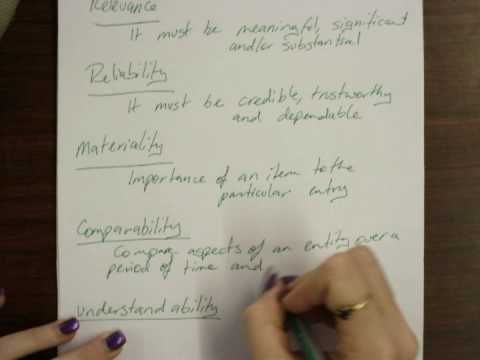 Relevance
It must be meaningful, significant
and/or substantial
Reliability
It must be credible, trustworthy
and dependable
Materiality
Importance of an item to the
particular entry
Comparability
aspects of an entity over a
period of time and
understandability